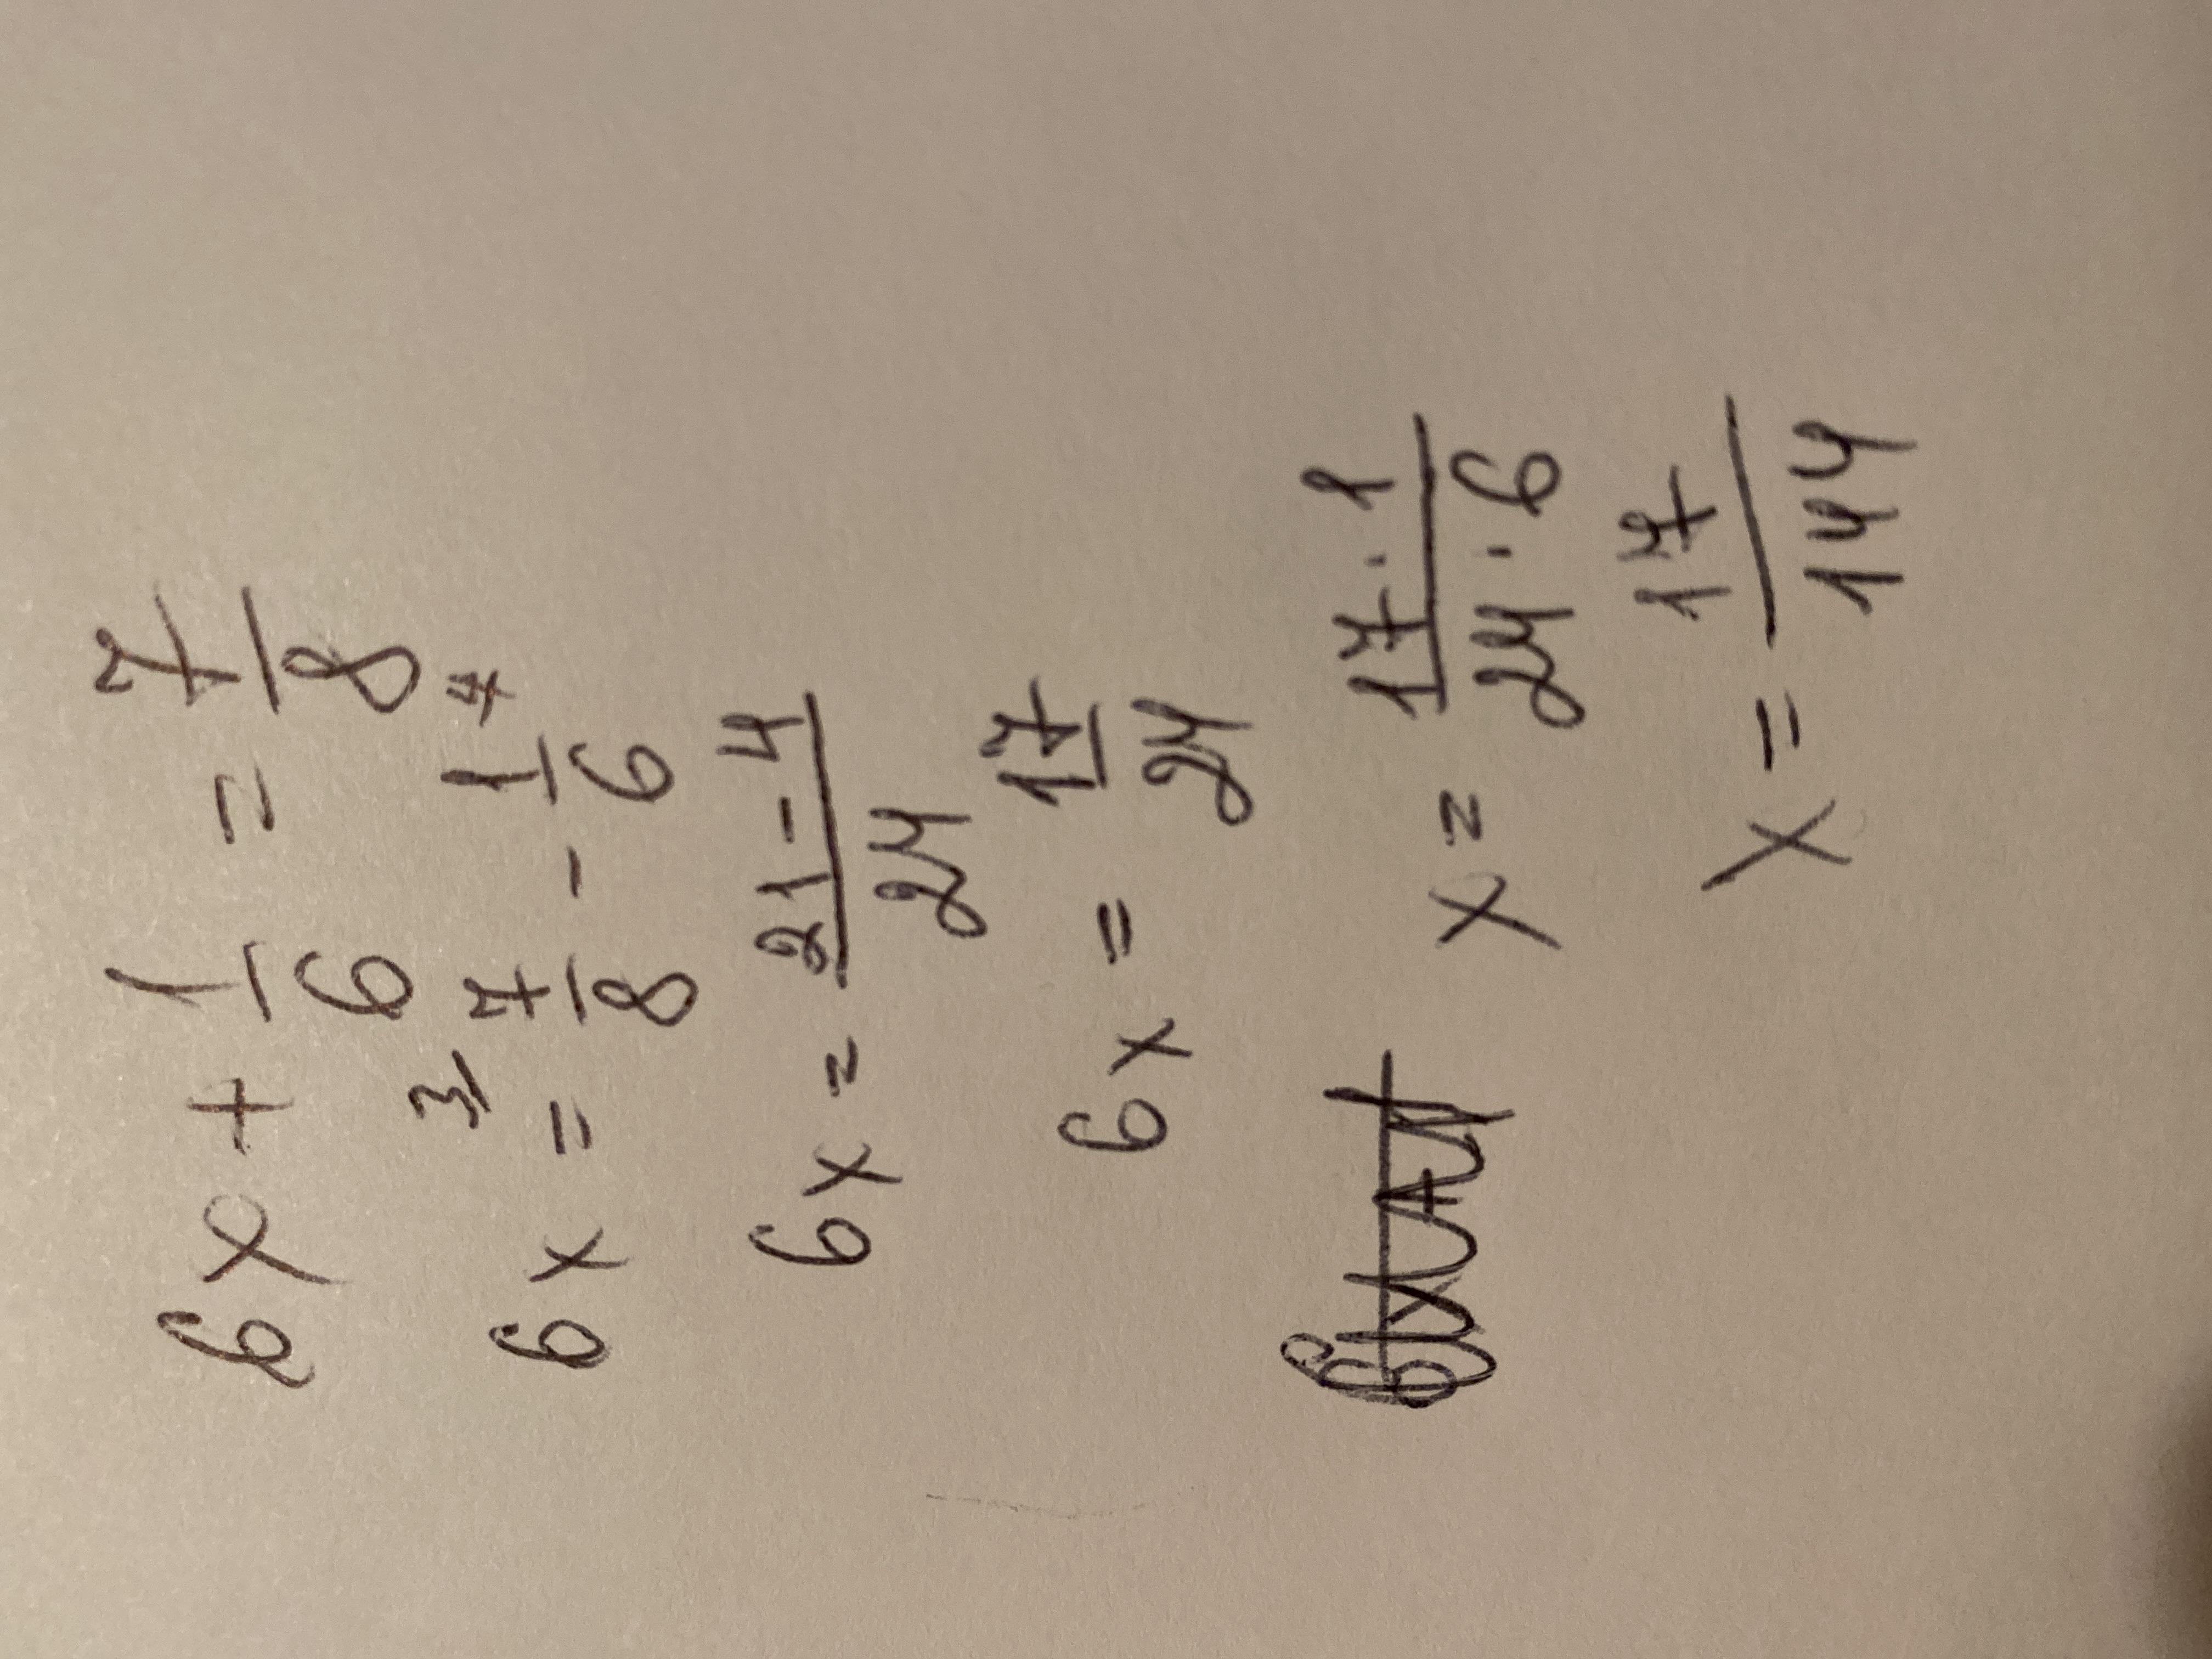 6x + 1/6 = 7/8
6x = ³/ 7/8 - 1/6 ⁴
6x = 21-4/24
6x = 17/24
x = 17·1/24·6
x = 17/144